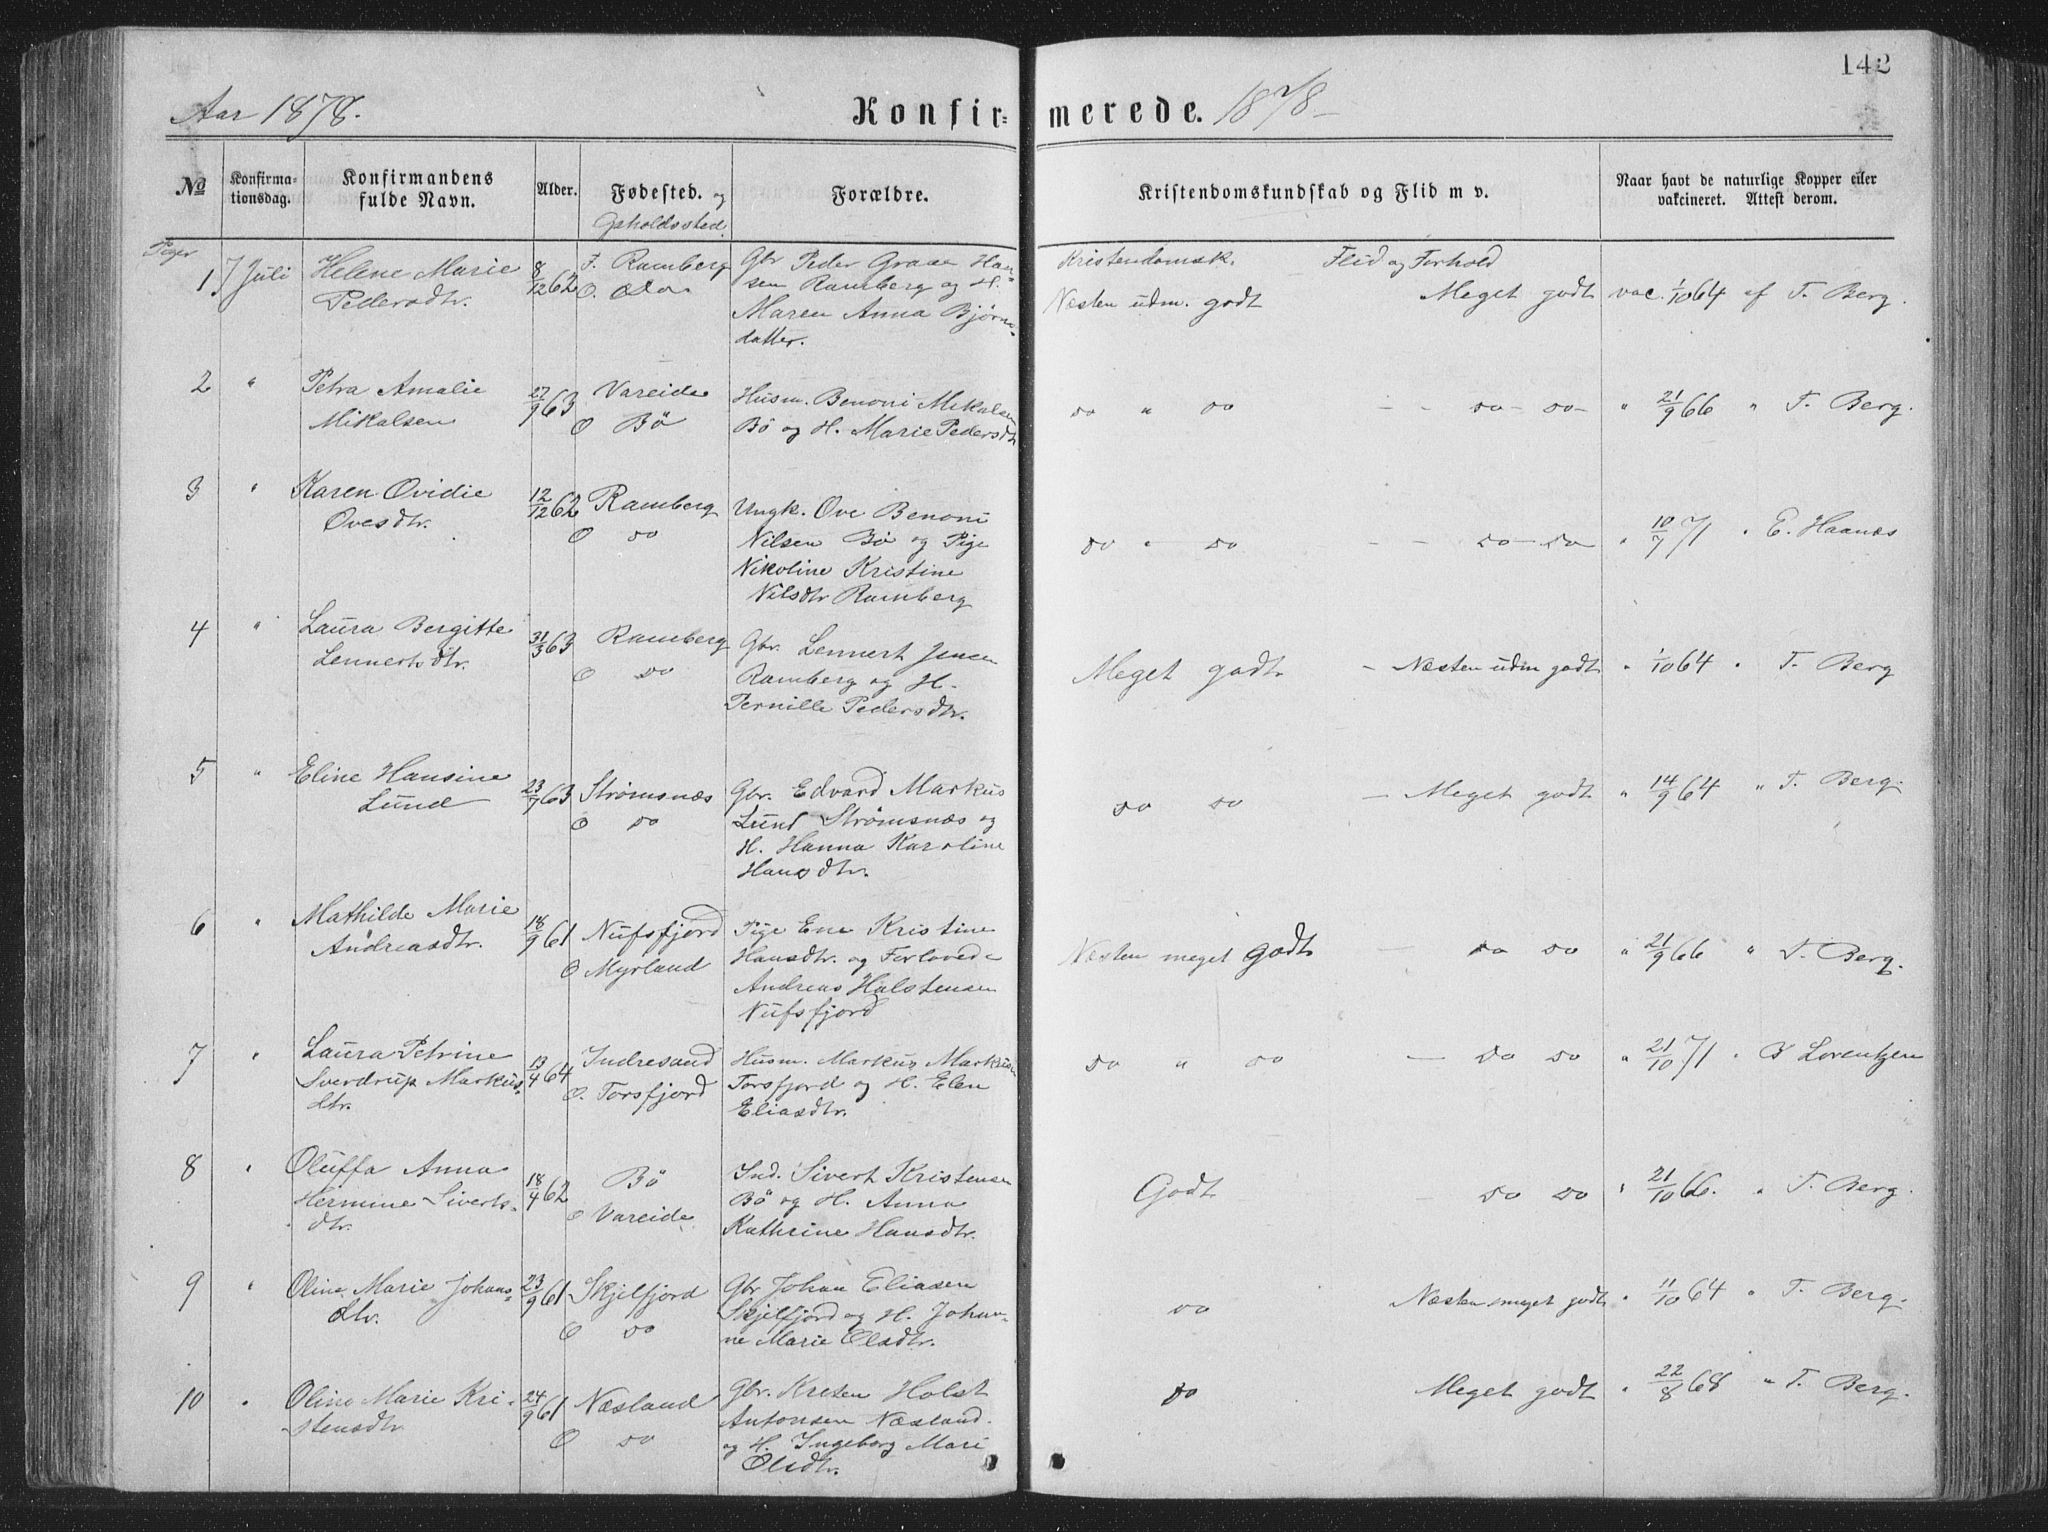 142
Aar 1878.
Konfirmerede. 1878
No
Konfirmationsdag.
Konfirmandens fulde Navn.
Alder.
Fødested. og Opholdssted.
Forældre.
Kristendomskundskab og Flid m v.
Naar havt de naturlige Kopper eller vakcineret. Attest derom.
Piger
Kristendomsk. Flid og Forhold
1 7 Juli Helene Marie 8/12 62 F. Ramberg Gbr Peder Graae Han-
Pedersdtr. O. do sen Ramberg og H.
Maren Anna Bjørns-
datter.
Næsten udm. godt Meget godt vac. 1/10 64 af T. Berg.
2 " Petra Amalie 27/9 63 Vareide Husm. Benoni Mikalsen
Mikalsen O Bö Bö og H. Marie Pedersdtr
do " do - - do - do - " 21/9 66 " T. Berg.
3 " Karen Ovidie 12/12 62 Ramberg Ungk. Ove Benoni
Ovesdtr. O do Nilsen Bö og Pige
Nikoline Kristine
Nilsdtr Ramberg
do " do - - do - do " 10/7 71 " E. Haanæs
4 " Laura Bergitte 31/3 63 Ramberg Gbr. Lennert Jensen
Lennertsdtr. O do Ramberg og H.
Pernille Pedersdtr.
Meget godt - Næsten udm godt " 1/10 64 " T. Berg
5 " Eline Hansine 23/7 63 Strømsnæs Gbr. Edvard Markus
Lund O do Lund Strømsnæs og
H. Hanna Karoline
Hansdtr.
do do - Meget godt " 14/9 64 " T. Berg.
6 " Mathilde Marie 18/9 61 Nufsfjord Pige Ene Kristine
Andreasdtr. O Myrland Hansdtr. og Forlovede
Andreas Halstensen
Nufsfjord
Næsten meget godt - do do " 21/9 66 " T. Berg.
7 " Laura Petrine 13/4 64 Indresand Husm. Markus Markusen
Sverdrup Markus- O. Torsfjord Torsfjord og H. Elen
dtr. Eliasdtr.
do " do - do do " 21/10 71 " Lorentzen
8 " Oluffa Anna 18/4 62 Bö Ind. Sivert Kristensen
Hermine Siverts- O Vareide Bö og H. Anna
dtr. Kathrine Hansdtr.
Godt - do do " 21/10 66. " T. Berg.
9 " Oline Marie Johans- 23/9 61 Skjelfjord Gbr Johan Eliasen
dtr. O do Skjelfjord og H. Johan-
ne Marie Olsdtr.
do Næsten meget godt " 11/10 64 " T. Berg.
10 " Oline Marie Kri- 24/9 61 Næsland Gbr. Kristen Holst
stensdtr O do Antonsen Næsland
og H. Ingeborg Mari
Olsdtr.
do Meget godt " 22/8 68 " T. Berg.